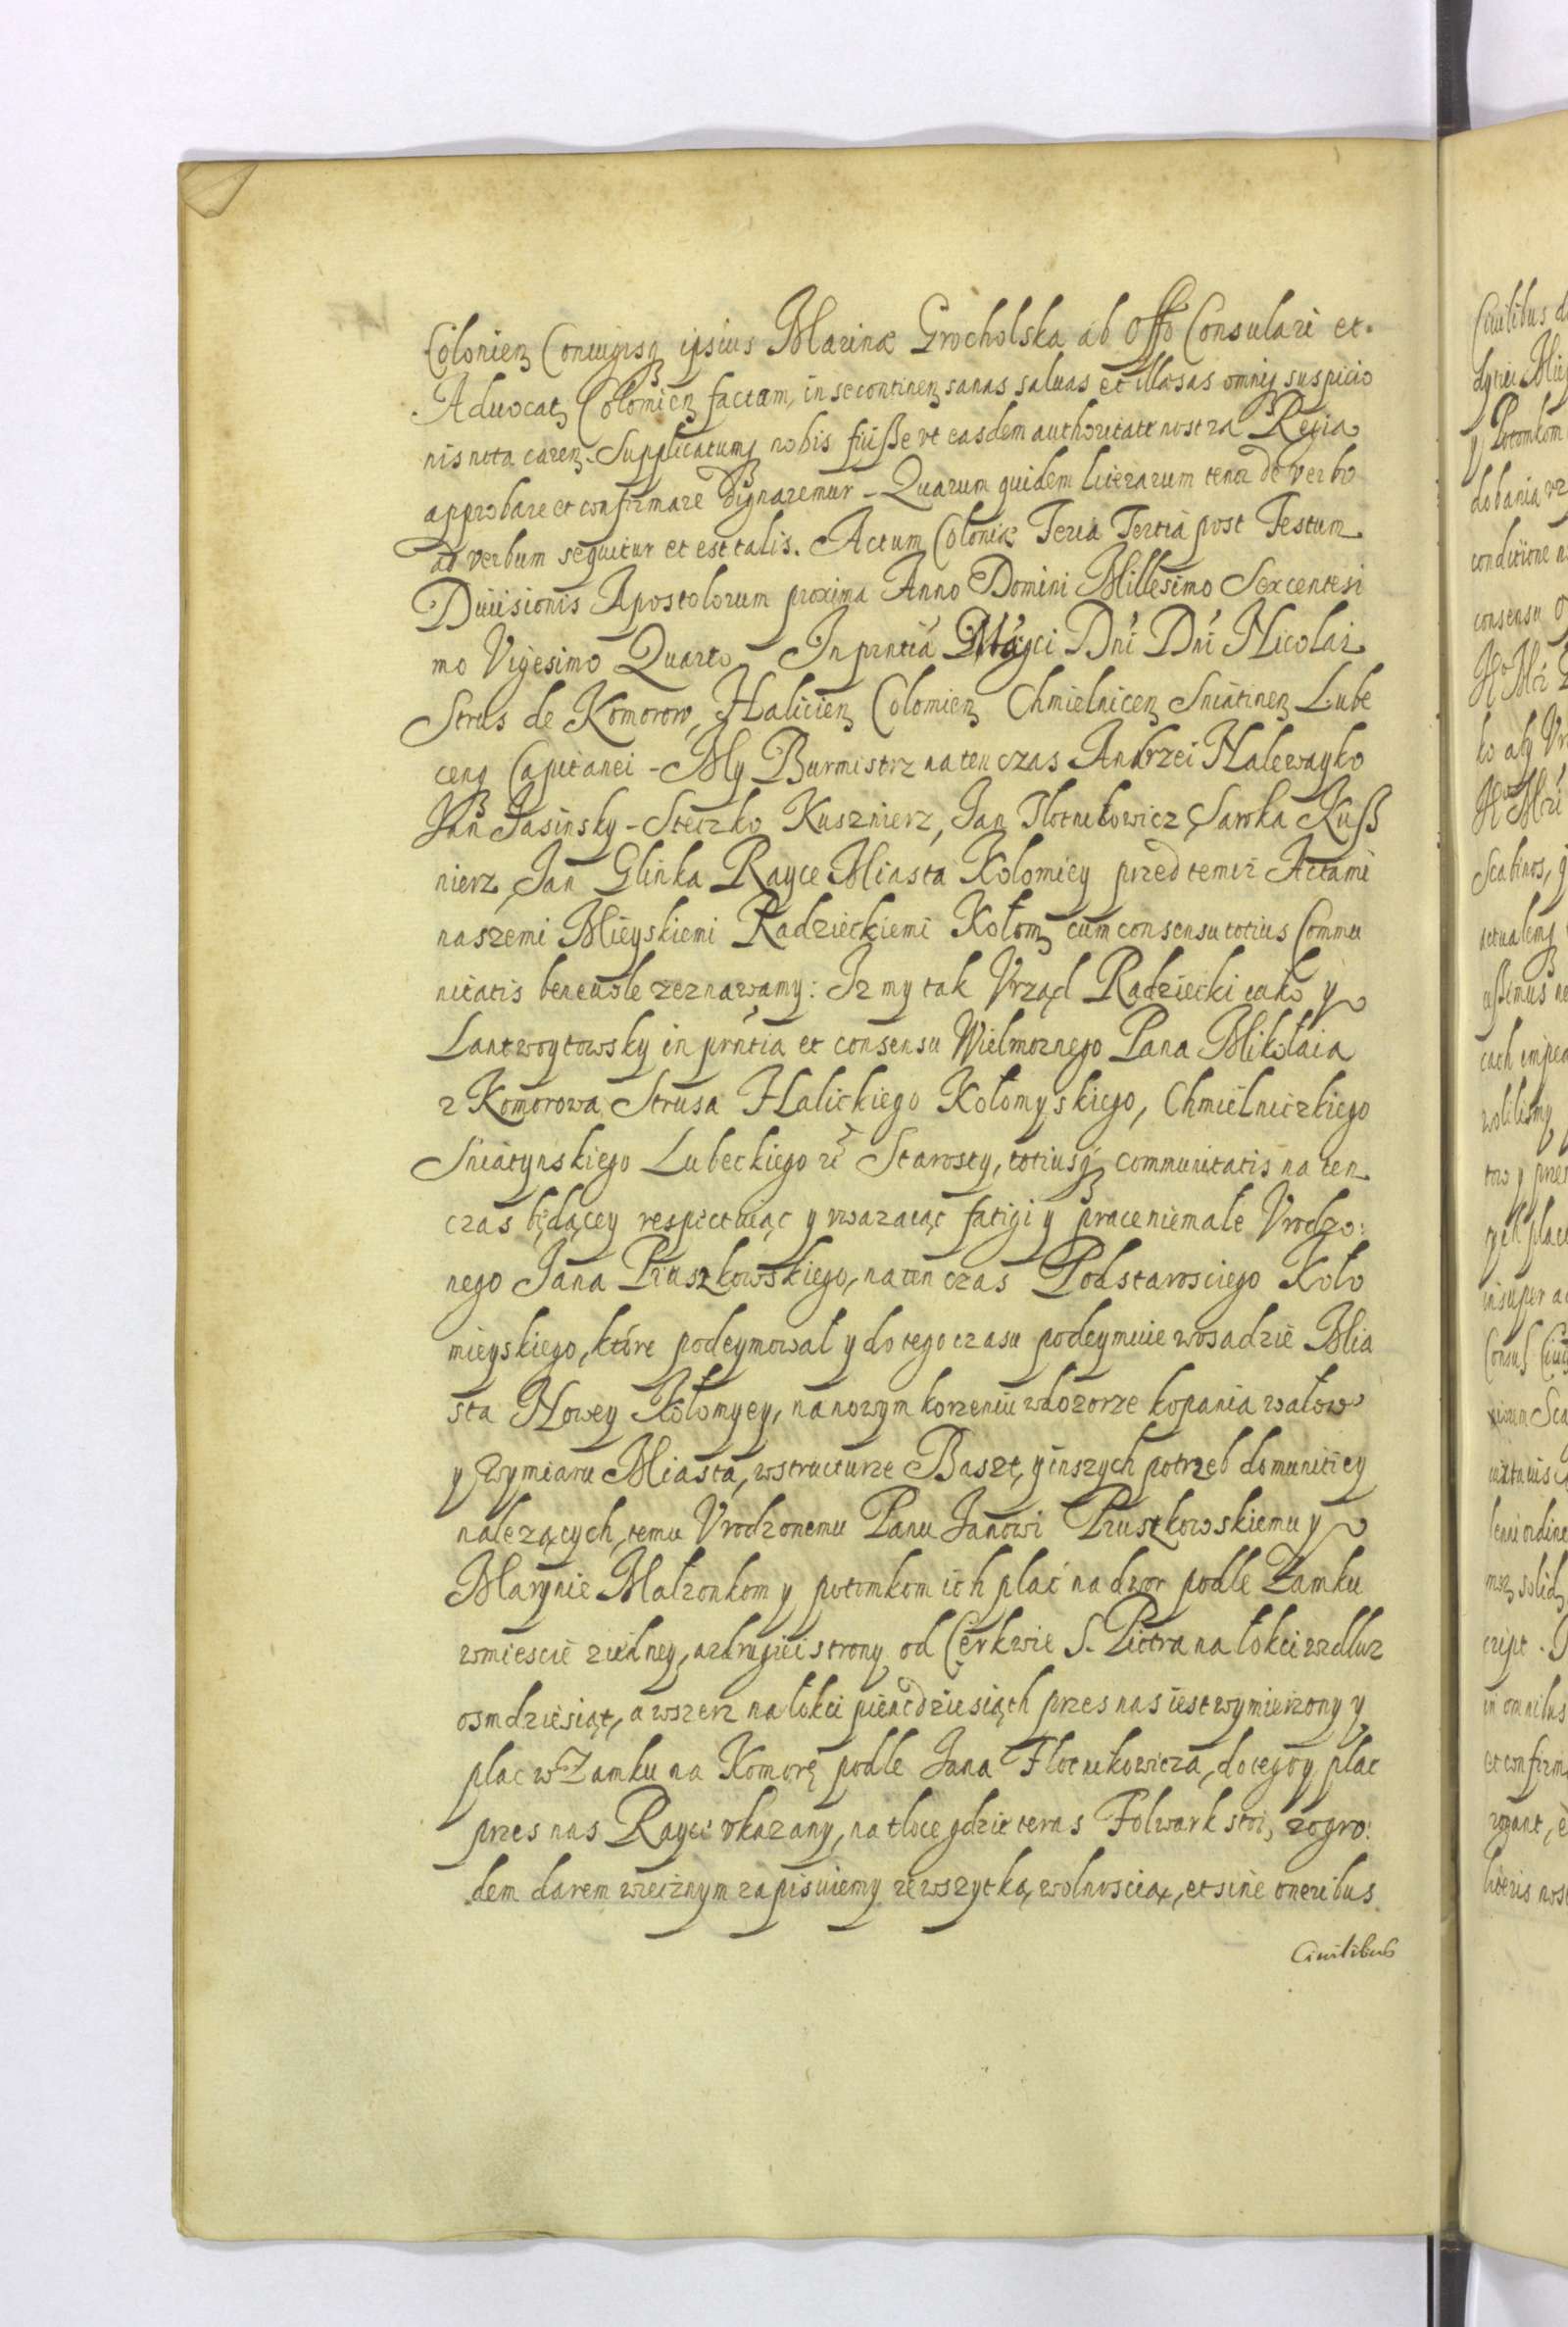 Colonien Coniugisq ipsius Marinæ Grocholska ab Offo Consulari et
Aduocat Colomien factam, in se continen sanas saluas et illæsas omniq suspicio
nis nota caren. Supplicatumq nobis fuiße vt easdem authoritate nostra Regia
approbare et confirmare dignaremur - Quarum quidem literarum tenor de verbo
ad verbum sequitur et est talis. Actum Coloniæ Feria Tertia post Festum
Diuisionis Apostolorum proxima Anno Domini Millesimo Sexcentesi
mo Vigesimo Quarto In prntia Magci Dni Dni Nicolai
Strus de Komorow, Halicien Colomien Chmielnicen Sniatinen Lube
cenq Capitanei - My Burmistrz na ten czas Andrzei Halewayko
Jan Jasinsky - Steczko Kusznierz, Jan Flotnikowicz, Saroka Kuß
nierz, Jan Glinka Rayce Miasta Kolomiey przed temiz Actami
naszemi Mieyskiemi Radzieckiemi Kołom cum consensu totius Commu
nitatis beneuole zeznawamy: Iz my tak Vrząd Radziecki iako y
Lantwoytowsky in prntia et consensu Wielmoznego Pana Mikołaia
z Komorowa Strusa Halickiego Kołomyskiego, Chmielniczkiego
Sniatynskiego Lubeckiego Starosty, totiusq communitatis na ten
czas będącey respectuiąc y vwazaiąc fatigi y prace niemałe Vrodzo:
nego Jana Pruszkowskiego, na ten czas Podstarosciego Koło
mieyskiego, które podeymował y do tego czasu podeymuie w osadzie Mia
sta Nowey Kołomyey, na nowym korzeniu w dozorze kopania wałow
y wymiaru Miasta, w structurze Baszt, y inszych potrzeb do munitiey
nalezących, temu Vrodzonemu Panu Janowi Pruszkowskiemu y
Marynie Małzonkom y potomkom ich plac na dwor podle Zamku
w miescie z iedney, a z drugiei strony od Cerkwie S. Piotra na łokci wzdłuz
osmdziesiąt, a wszerz na łokci piencdziesiąth przes nas iest wymierzony y
plac w Zamku na Komorę podle Jana Flotnikowicza, do tego y plac
przes nas Rayce vkazany, na tłoce gdzie teras Folwark stoi, z ogro:
dem darem wiecznym zapisuiemy ze wszytką wolnoscią, et sine oneribus
Ciuilibus